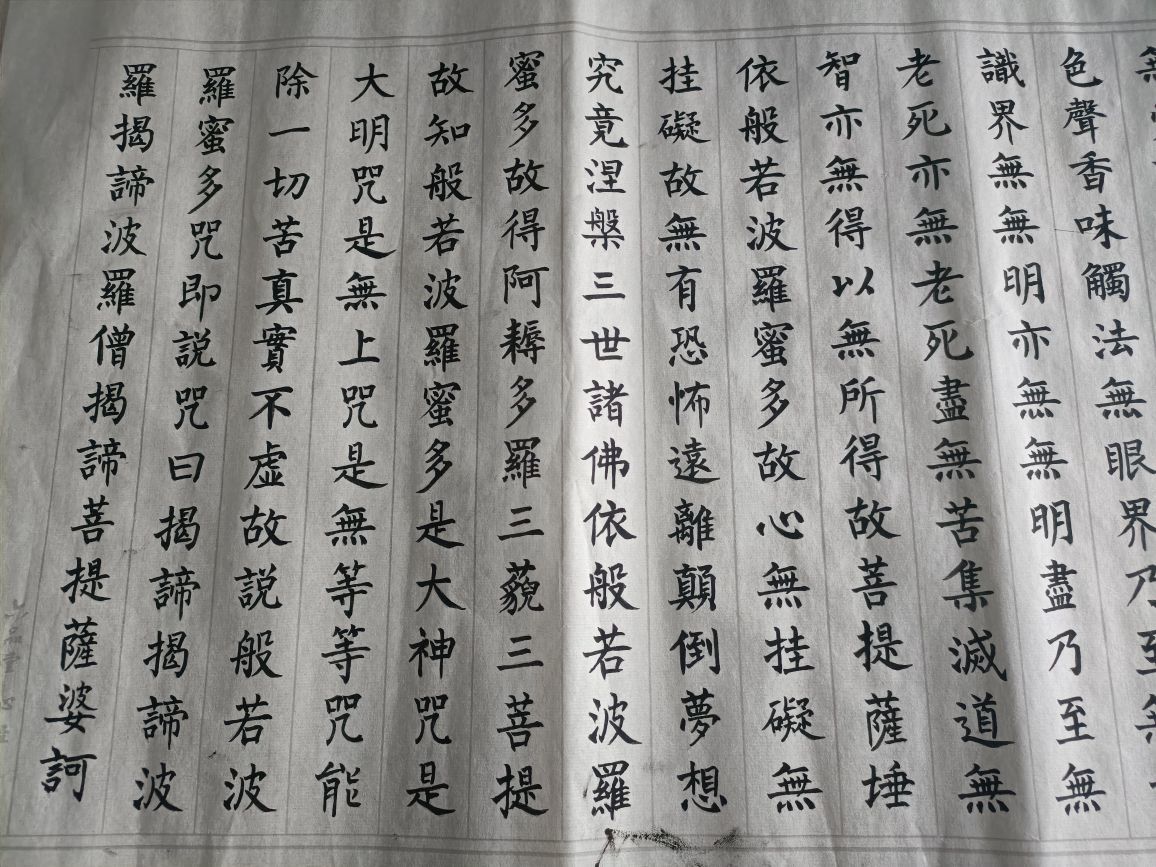 色聲香味觸法無眼界乃至無
識界無無明亦無無明盡乃至無
老死亦無老死盡無苦集滅道無
智亦無得以無所得故菩提薩埵
依般若波羅蜜多故心無挂礙無
挂礙故無有恐怖遠離顛倒夢想
究竟涅槃三世諸佛依般若波羅
蜜多故得阿耨多羅三藐三菩提
故知般若波羅蜜多是大神咒是
大明咒是無上咒是無等等咒能
除一切苦真實不虛故説般若波
羅蜜多咒即説咒曰揭諦揭諦波
羅揭諦波羅僧揭諦菩提薩婆訶